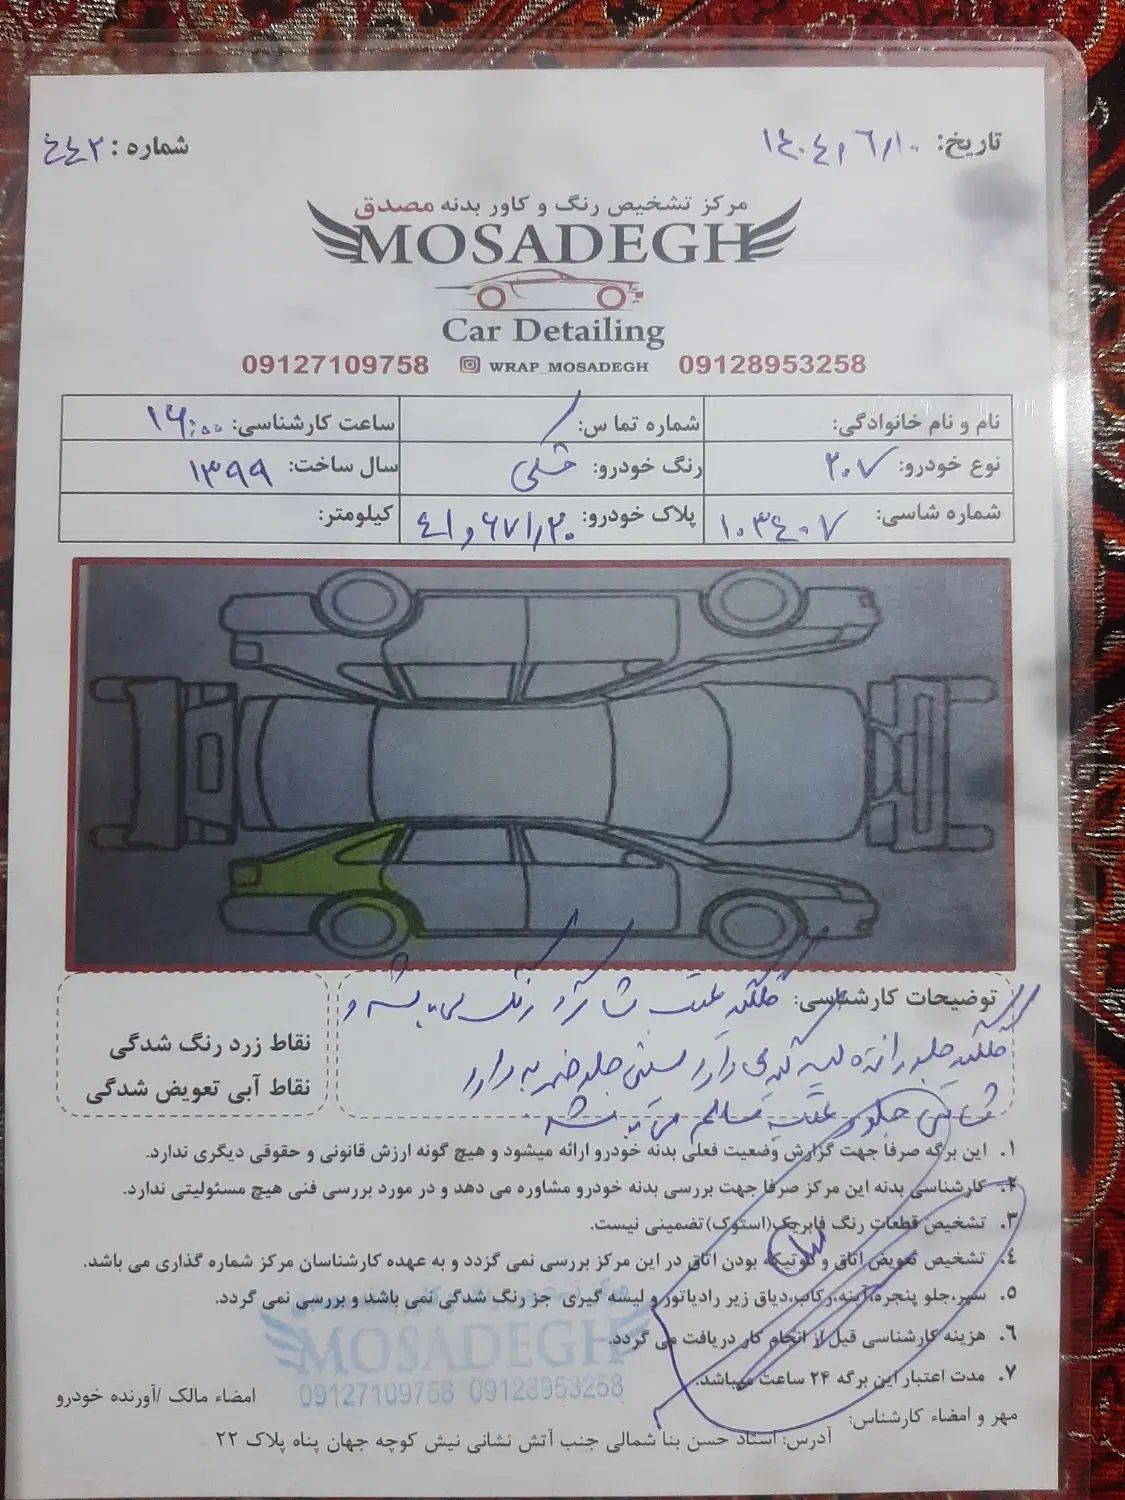 تاریخ: ۱۴۰۴٫۶٫۱۰
شماره: ۴۴۲
مرکز تشخیص رنگ و کاور بدنه مصدق
MOSADEGH
Car Detailing
09127109758 WRAP_MOSADEGH 09128953258
نام و نام خانوادگی: شماره تماس: ساعت کارشناسی:
نوع خودرو: ۲۰۷ رنگ خودرو: مشکی سال ساخت: ۱۳۹۹
شماره شاسی: ۱۰۳۴۰۷ پلاک خودرو: کیلومتر:
توضیحات کارشناسی: گلگیر عقب شاگرد رنگ می باشد و
گلگیر جلو راننده لیسه گیری دارد سینی جلو ضربه دارد
شاسی جلو و عقب سالم می باشد
نقاط زرد رنگ شدگی
نقاط آبی تعویض شدگی
۱. این برگه صرفاً جهت گزارش وضعیت فعلی بدنه خودرو ارائه میشود و هیچ گونه ارزش قانونی و حقوقی دیگری ندارد.
۲. کارشناسی بدنه این مرکز صرفا جهت بررسی بدنه خودرو مشاوره می دهد و در مورد بررسی فنی هیچ مسئولیتی ندارد.
۳. تشخیص قطعات رنگ فابریک(استوک) تضمینی نیست.
۴. تشخیص تعویض اتاق و بودن اتاق در این مرکز بررسی نمی گزدد و به عهده کارشناسان مرکز شماره گذاری می باشد.
۵. سپر،جلو پنجره،آینه،رکاب،دیاق زیر رادیاتور و لیسه گیری جز رنگ شدگی نمی باشد و بررسی نمی گردد.
۶. هزینه کارشناسی قبل از انجام کار دریافت می گردد.
۷. مدت اعتبار این برگه ۲۴ ساعت میباشد.
MOSADEGH
09127109758 09128953258
مهر و امضاء کارشناس:
امضاء مالک /آورنده خودرو
آدرس: استاد حسن بنا شمالی جنب آتش نشانی نبش کوچه جهان پناه پلاک ۲۲